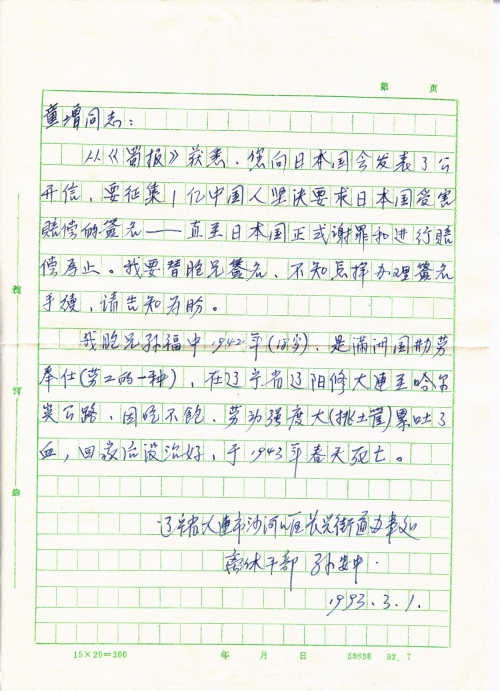 第 页
童增同志：
从《蜀报》获悉，您向日本国会发表了公
开信，要征集1亿中国人坚决要求日本国受害
赔偿的签名——直至日本国正式谢罪和进行赔
偿为止。我要替胞兄签名，不知怎样办理签名
手续，请告知为盼。
我胞兄孙福中1942年(18岁)，是满洲国勤劳
奉仕(劳工的一种)，在辽宁省辽阳修大连至哈尔
滨公路，因吃不饱，劳动强度大(挑土篮)累吐了
血，回家后没治好，于1943年春天死亡。
辽宁省大连市沙河口区长兴街道办事处
离休干部 孙安中
1993.3.1.
15×20=300 年 月 日 53626 92.7